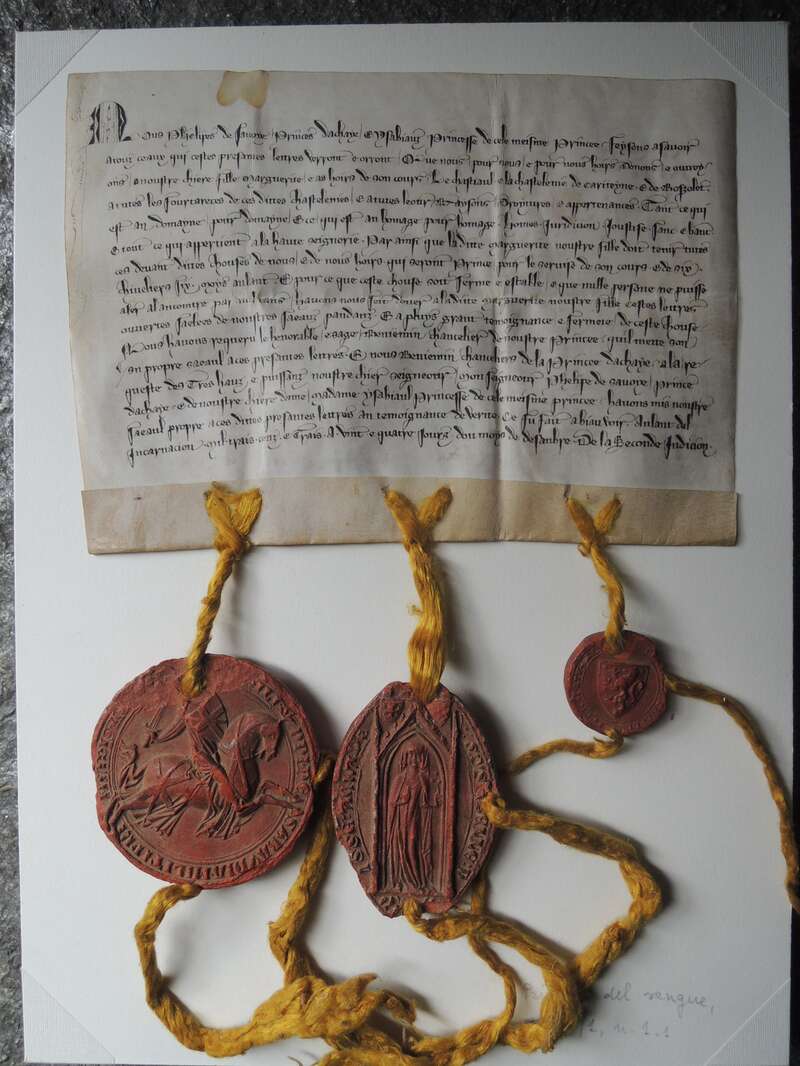 Nous Phelipes de Savoye Princes dachaye e Ysabiauz Princesse de cele meisme Princee feysons asavoir
atouz ceaux qui cestes presantes letres verront e orront Que nous pour nous e pour nous hoirs donons e outroy
ons a noustre chiere fille Marguerite e as hoirs de son cours Le chastiaul e la chastelenie de Cariteyne E de Bosselet
A tutes les de ces dites chastelenies E a tutes leour Raysons e appertenances Tant ce qui
est an domayne pour domayne E ce qui est an homage pour homage Homes Juridicion Joustise sanc e bant
E tout ce qui appertient a la haute seignerie Par ainsi que la dite Marguerite noustre fille doit tenir tutes
ces devant dites chouses de nous e de nous hoirs qui seront Prince pour le servise de son cours e de six
chiveliers six moys an lant E pour ce que ceste chouse soit ferme e estable e que nulle persane ne puisse
aler al ancontre par nul tans havons nous fait doner a la dite Marguerite noustre fille cestes letres
ouvertes saelees de noustres saeauz pandanz E a pluys grant temoignance e fermete de ceste chouse
Nous havons requeru le honorable e sage Beniemin chancelier de noustre Princee quil mette son
san propre saeaul a ces presantes letres E nous Beniemin chanceliers de la Princee dachaye a la re
queste des Tres hauz e puissanz noustre chier seignour Monseignour Phelipe de Savoye Prince
dachaye e de noustre chiere dame madame Ysabiaul Princesse de cele meisme princee havons mis noustre
saeaul propre a ces dites presantes letres an temoignance de verite Ce fu fait a biauvoir Aulant del
Incarnacion Mil trais cenz e Trais A vint e quatre jours dou moys de desanbre De la Seconde Indicion
del sangue,
n. 1.1